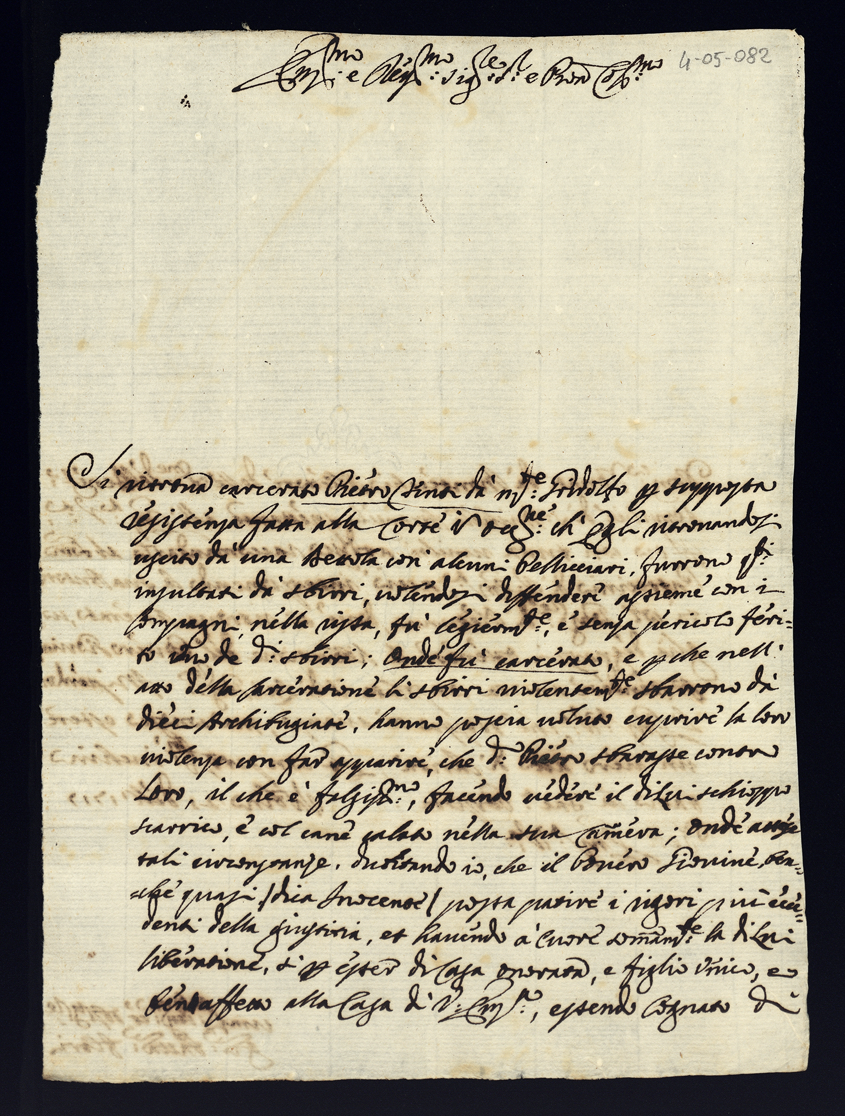 Em:mo e Rev:mo Sig:re S:r e Pron Col:mo
4-05-082
Si ritrova carcerato Pietro Cinti da m:te Gridolfo p supposta
resistenza fatta alla Corte in occ:ne ch'egli ritrovandosi
uscito da una Bettola con alcuni Pellicciari, furrono q:ti
insultati da sbirri, volendosi diffendere assieme con i
Compagni, nella rissa, fu legierm:te, e senza pericolo feri=
to uno de d:i sbirri; onde fu carcerato, e p che nell'
atto della carceratione li sbirri violentem:te sbarrono da
dieci Archibugiate, hanno poscia voluto cuprire la loro
violenza con far apparire, che d:o Pietro sbarasse contro
Loro, il che è falsiss:mo, facendo vedere il di Lui schioppo
scarrico, e col cane calato nella sua camera; onde attese
tali circonstanze, dubitando io, che il Povero Giovine, ben=
=che quasi /dica Inocente/ possa patire i rigori più ecce=
denti della giustizia, et havendo a cuore somam:te la di Lui
liberatione, sì p esser di Casa onorata, e figlio unico, e
ben affetto alla Casa di V: Em:a, essendo Cognato di